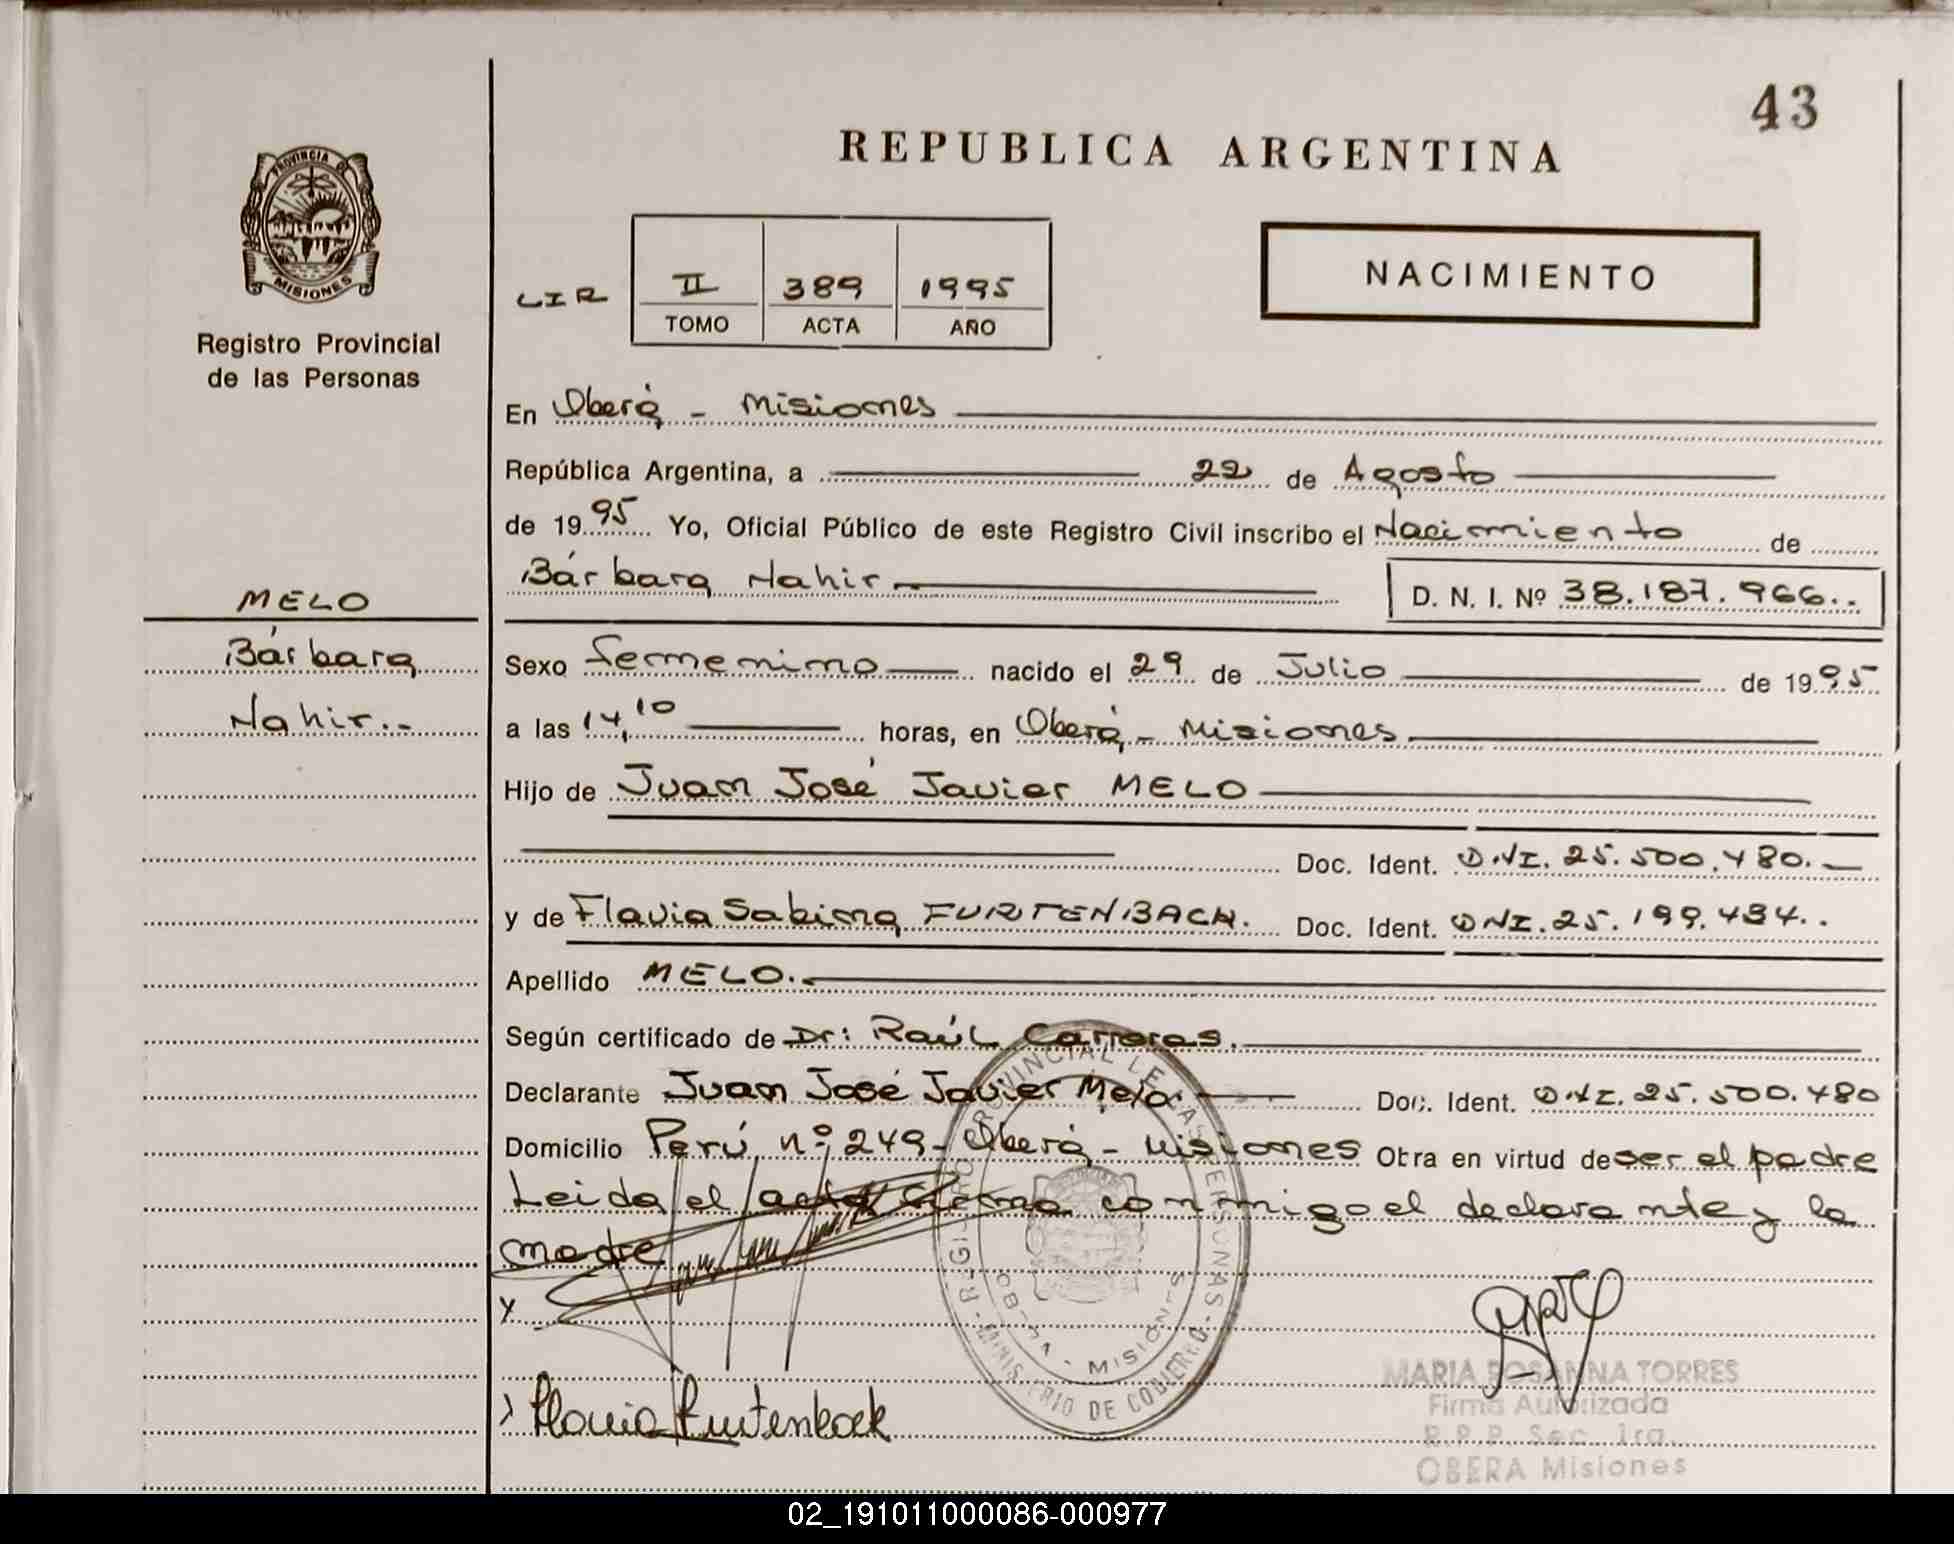 43
REPUBLICA ARGENTINA
PROVINCIA DE
MISIONES
Registro Provincial
de las Personas
LIR
II 389 1995
TOMO ACTA AÑO
NACIMIENTO
En Oberá - Misiones
República Argentina, a 22 de Agosto
de 1995 Yo, Oficial Público de este Registro Civil inscribo el Nacimiento de
Bárbara Nahir D. N. I. Nº 38.187.966..
MELO
Bárbara
Nahir..
Sexo femenino nacido el 29 de Julio de 1995
a las 14,10 horas, en Oberá - Misiones
Hijo de Juan José Javier MELO
Doc. Ident. DNI. 25.500.480.
y de Flavia Sabina FURTENBACH. Doc. Ident. DNI. 25.199.434..
Apellido MELO.
Según certificado de Dr: Raúl Carreras.
Declarante Juan José Javier Melo Doc. Ident. DNI. 25.500.480
Domicilio Perú nº 249 - Oberá - Misiones Obra en virtud de ser el padre
Leida el acta firma conmigo el declarante y la
madre
Y
REGISTRO PROVINCIAL DE LAS PERSONAS - MINISTERIO DE GOBIERNO
OBERA - MISIONES
Flavia Furtenbach
MARIA ROSANNA TORRES
Firma Autorizada
R.P.P. Sec. 1ra.
OBERA Misiones
02_191011000086-000977